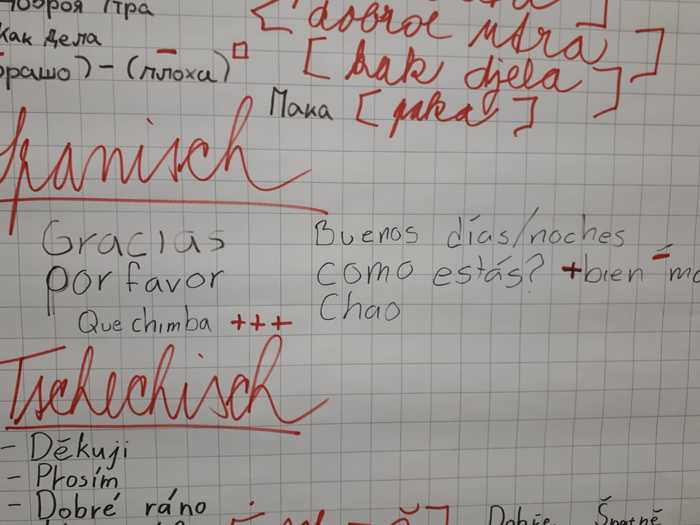 как дела
[dobroe utra]
[kak djela]
(плоха)
Пака [paka]
Spanisch
Gracias
por favor
Que chimba +++
Buenos días/noches
como estás? +bien -
Chao
Tschechisch
- Děkuji
- Prosím
- Dobré ráno
Dobře Špatně